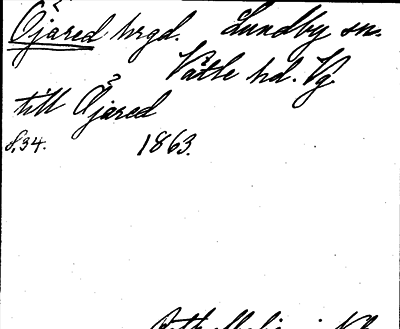 Öijared hrgd. Lundby sn.
Vättle hd. Vg
till Öijared
8,34. 1863.